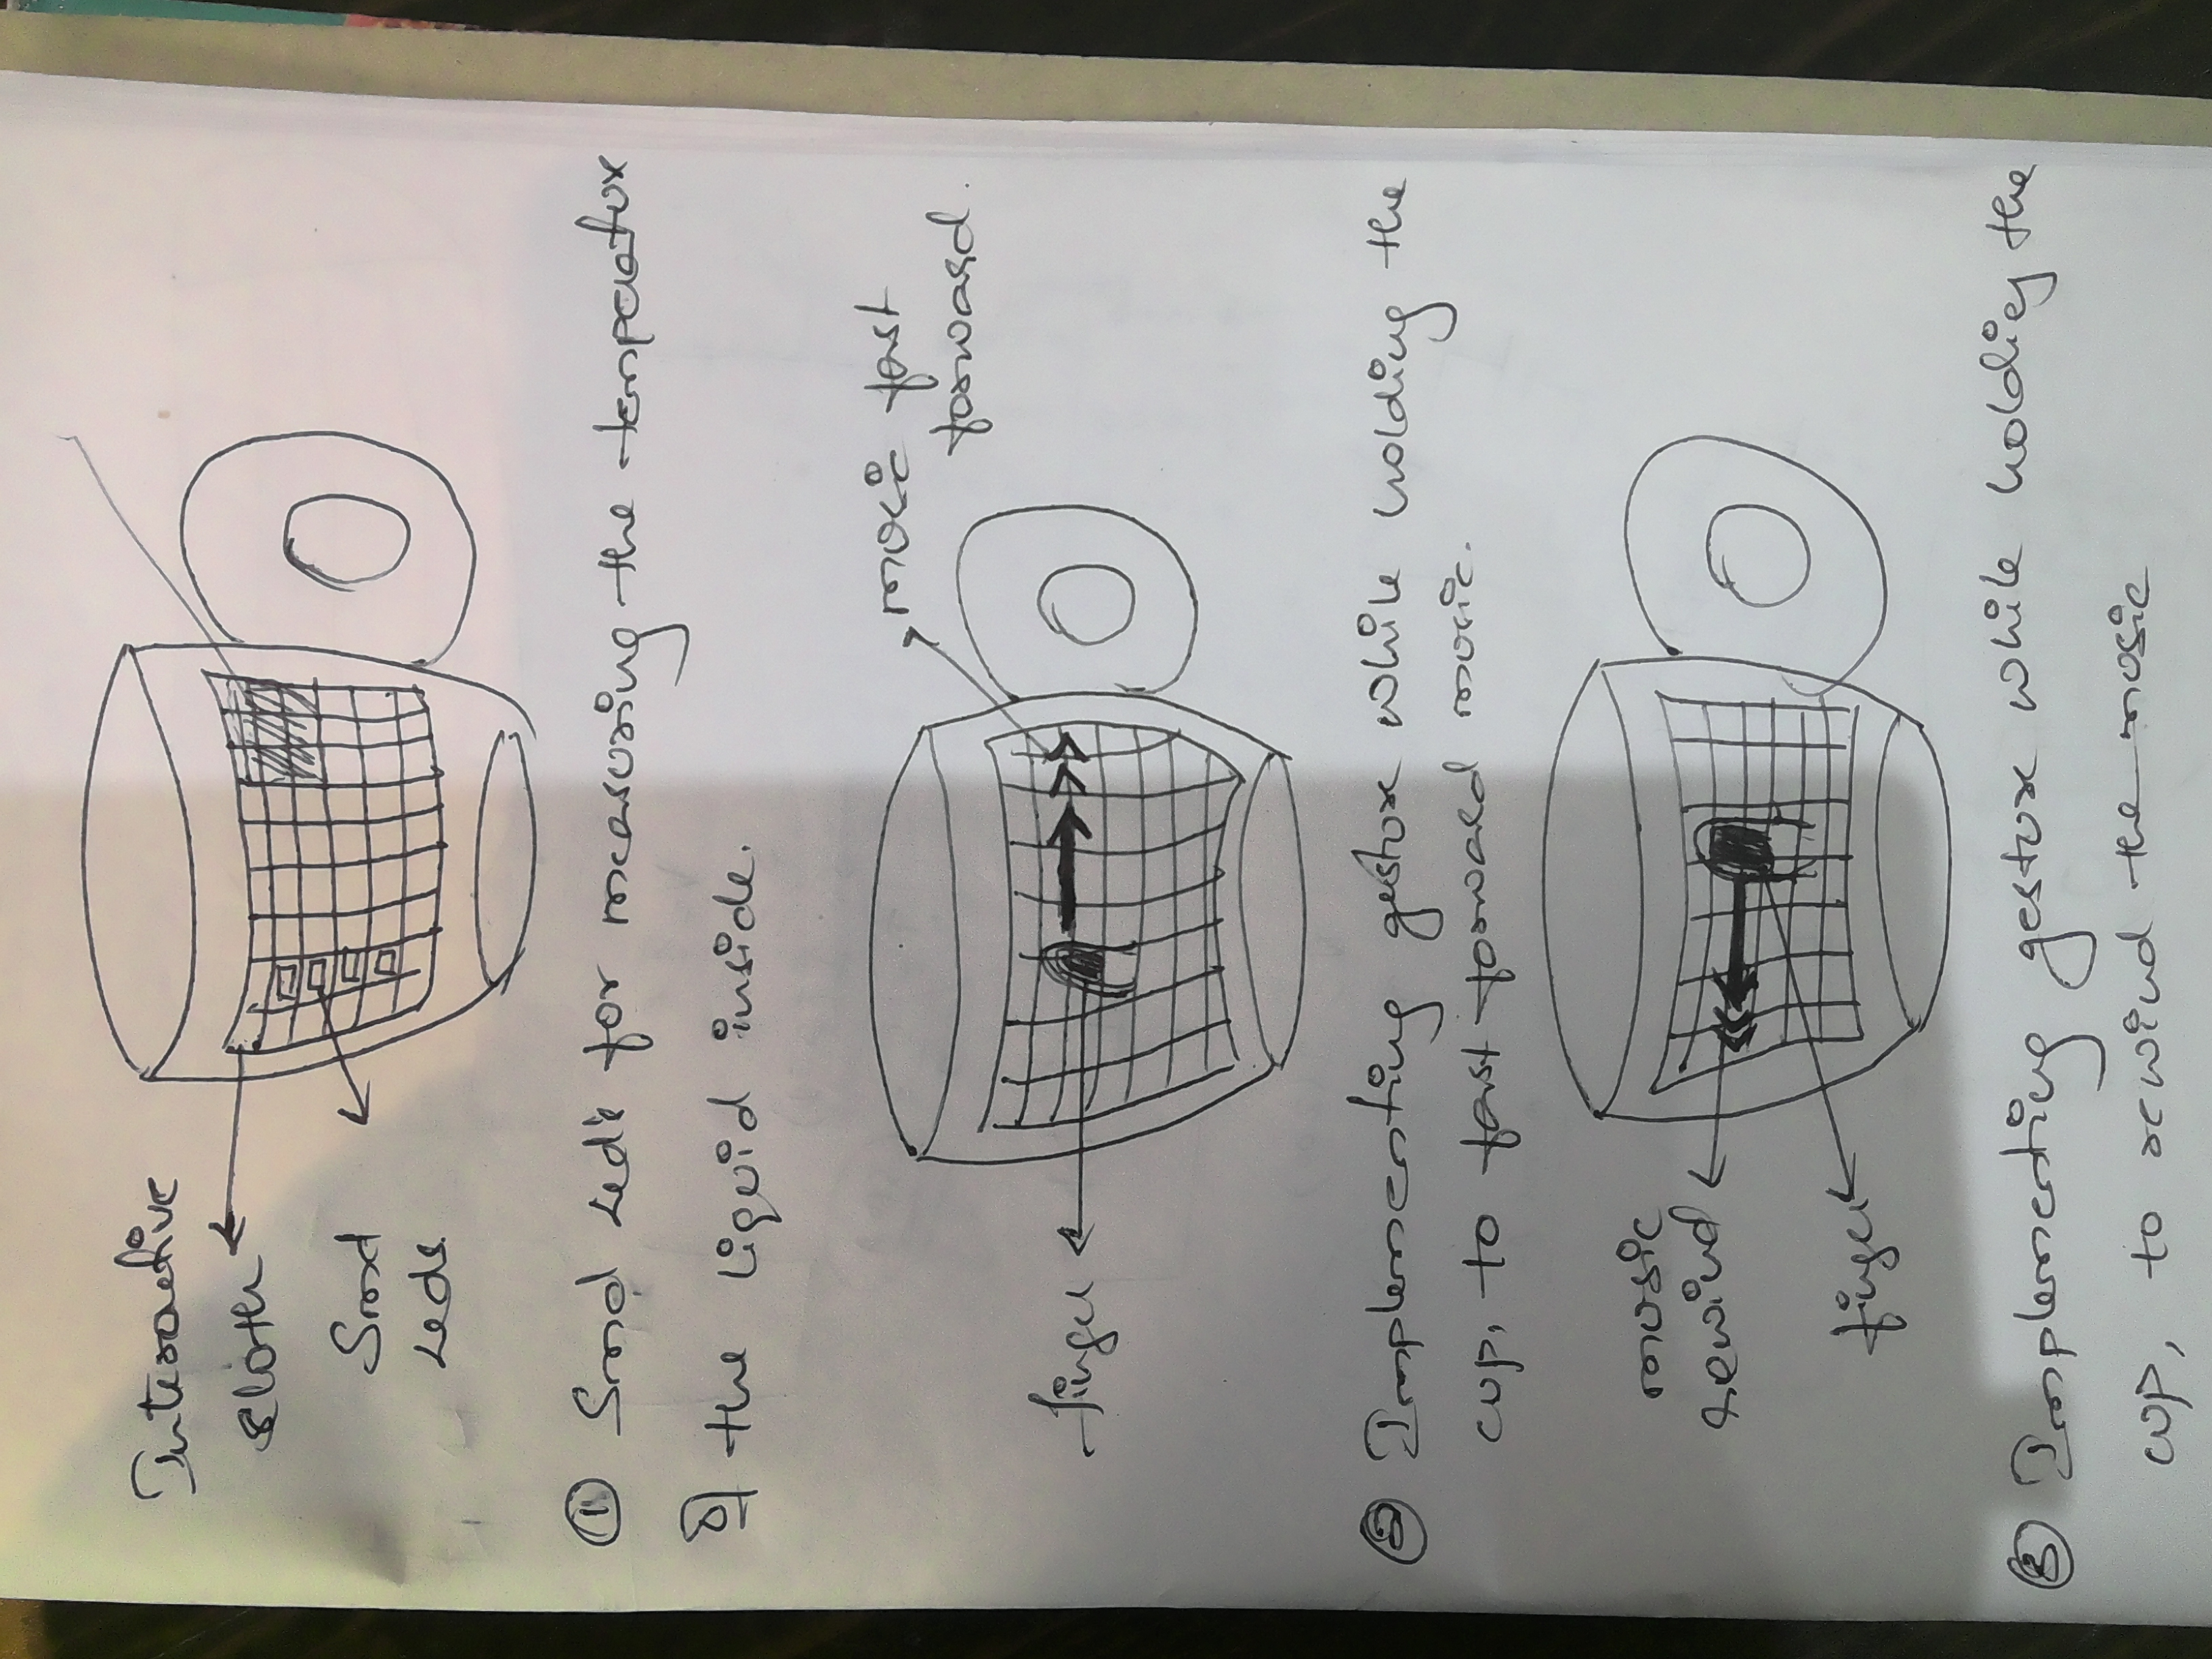 Interactive
cloth
Smd
Leds.
① Smd Led's for measuring the temperature
of the liquid inside.
music fast
forward.
finger
② Implementing gesture while holding the
cup, to fast forward music.
music
rewind
finger
③ Implementing gesture while holding the
cup, to rewind the music